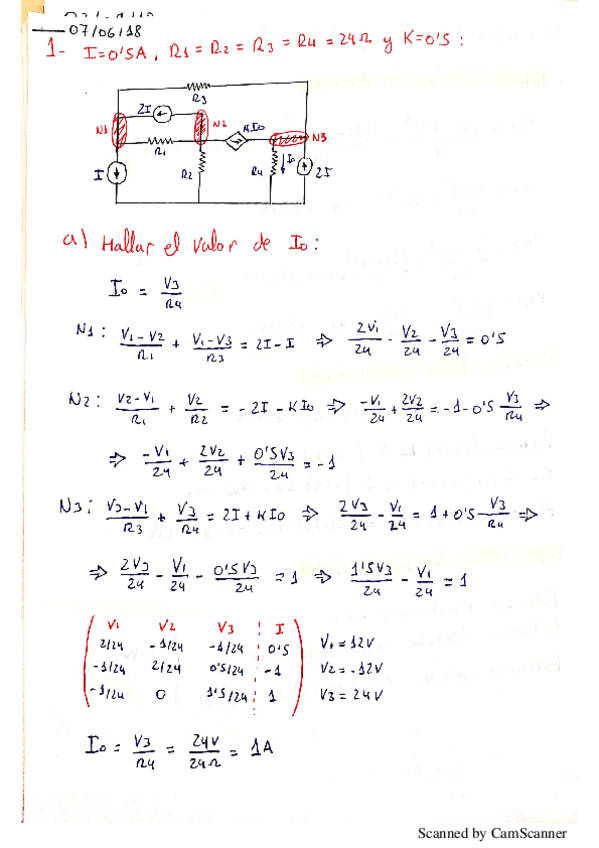 07/06/18
1- I=0'5A, R1 = R2 = R3 = R4 = 24Ω y K=0'5 :
R3
2I
N1
N2
KIo
N3
R1
I
R2
R4
Io
2I
a) Hallar el valor de Io:
Io = V3/R4
N1: (V1-V2)/R1 + (V1-V3)/R3 = 2I - I ⇒ 2V1/24 - V2/24 - V3/24 = 0'5
N2: (V2-V1)/R1 + V2/R2 = -2I - KIo ⇒ -V1/24 + 2V2/24 = -1 - 0'5 V3/R4 ⇒
⇒ -V1/24 + 2V2/24 + 0'5V3/24 = -1
N3: (V3-V1)/R3 + V3/R4 = 2I + KIo ⇒ 2V3/24 - V1/24 = 1 + 0'5 V3/R4 ⇒
⇒ 2V3/24 - V1/24 - 0'5V3/24 = 1 ⇒ 1'5V3/24 - V1/24 = 1
V1 V2 V3 I
2/24 -1/24 -1/24 0'5 V1 = 12V
-1/24 2/24 0'5/24 -1 V2 = -12V
-1/24 0 1'5/24 1 V3 = 24V
Io = V3/R4 = 24V/24Ω = 1A
Scanned by CamScanner